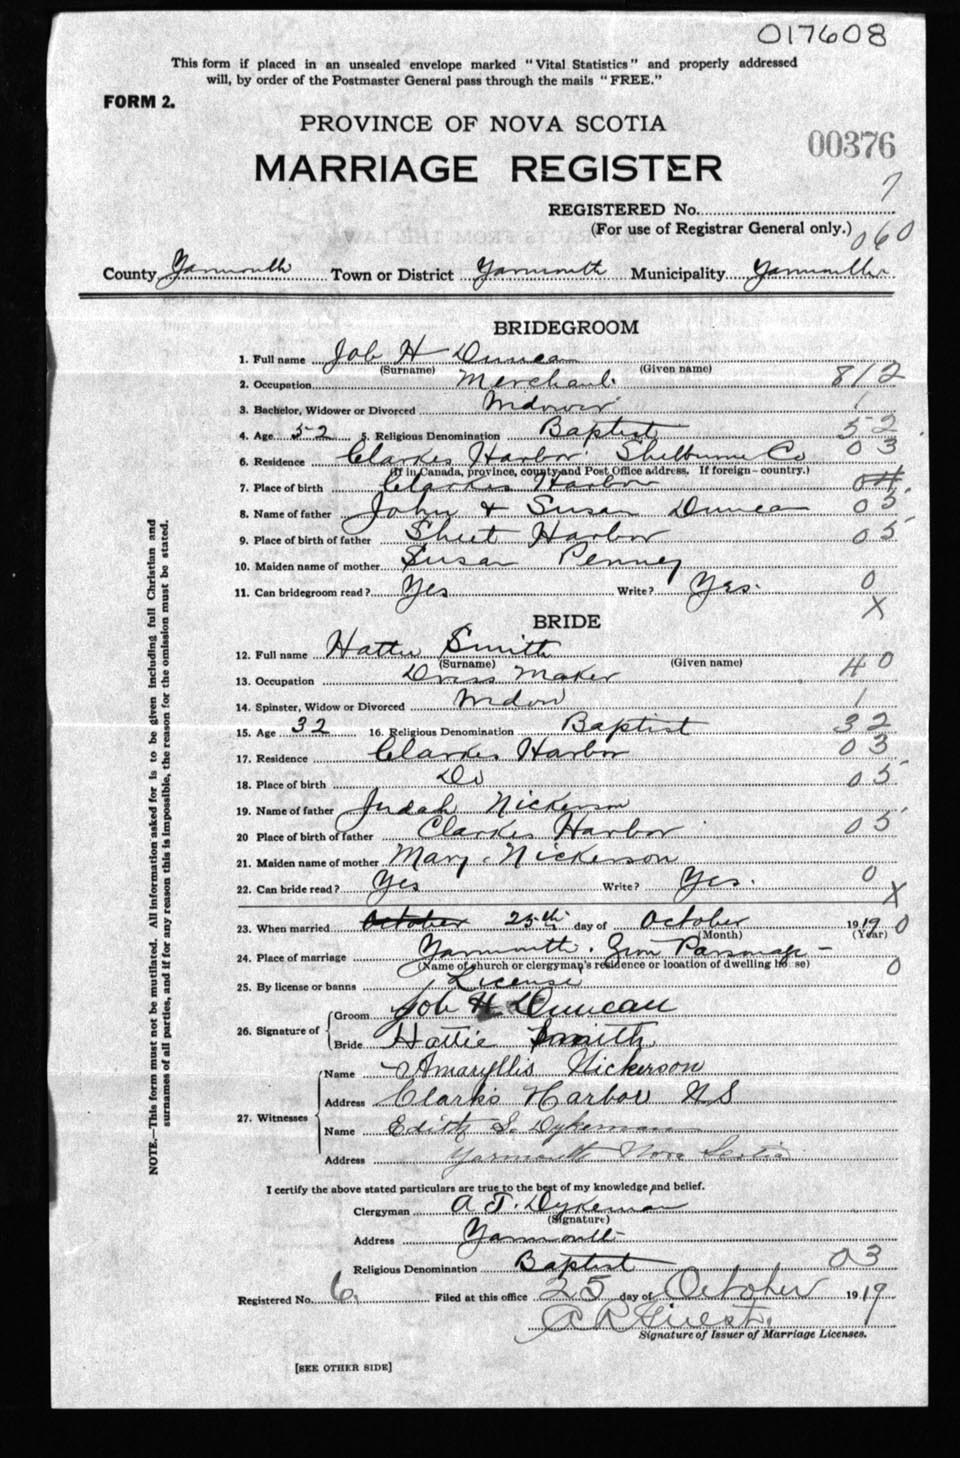 017608
This form if placed in an unsealed envelope marked "Vital Statistics" and properly addressed
will, by order of the Postmaster General pass through the mails "FREE."
FORM 2.
PROVINCE OF NOVA SCOTIA
00376
MARRIAGE REGISTER
7
REGISTERED No.
(For use of Registrar General only.)
060
County Yarmouth Town or District Yarmouth Municipality Yarmouth
BRIDEGROOM
1. Full name Job H Duncan
(Surname) (Given name)
2. Occupation Merchant 812
3. Bachelor, Widower or Divorced Widower 1
4. Age 52 5. Religious Denomination Baptist 52
6. Residence Clarkes Harbor Shelburne Co 03
(If in Canada, province, county and Post Office address. If foreign - country.)
7. Place of birth Clarkes Harbor 04
8. Name of father John & Susan Duncan 05
9. Place of birth of father Sheet Harbor 05
10. Maiden name of mother Susan Penney
11. Can bridegroom read? Yes Write? Yes. 0
X
BRIDE
12. Full name Hattie Smith
(Surname) (Given name)
13. Occupation Dress Maker 40
14. Spinster, Widow or Divorced Widow 1
15. Age 32 16. Religious Denomination Baptist 32
17. Residence Clarkes Harbor 03
18. Place of birth Do 05
19. Name of father Judah Nickerson
20 Place of birth of father Clarkes Harbor 05
21. Maiden name of mother Mary Nickerson
22. Can bride read? Yes Write? Yes. 0
X
23. When married October 25th day of October 1919 0
(Month) (Year)
24. Place of marriage Yarmouth. Zion Parsonage
(Name of church or clergyman's residence or location of dwelling ho se) 0
25. By license or banns License
26. Signature of Groom Job H Duncan
Bride Hattie Smith
27. Witnesses Name Amaryllis Nickerson
Address Clark's Harbor N S
Name Edith S. Dykeman
Address Yarmouth Nova Scotia
I certify the above stated particulars are true to the best of my knowledge and belief.
Clergyman A. J. Dykeman
(Signature)
Address Yarmouth
Religious Denomination Baptist 03
Registered No. 6. Filed at this office 25 day of October 1919
Signature of Issuer of Marriage Licenses.
[SEE OTHER SIDE]
NOTE.—This form must not be mutilated. All information asked for is to be given including full Christian and
surnames of all parties, and if for any reason this is impossible, the reason for the omission must be stated.